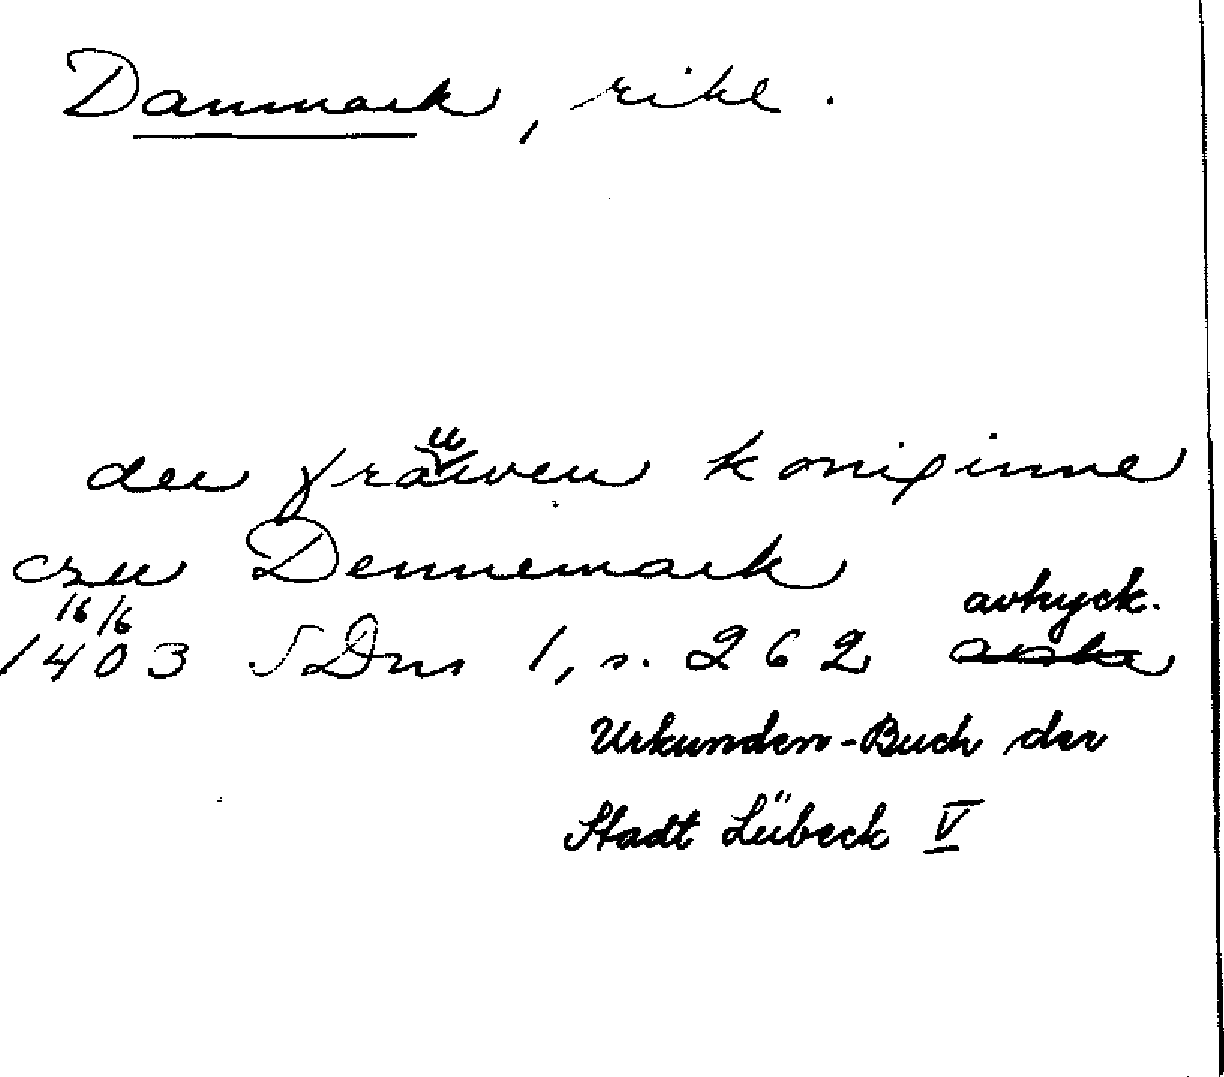 Danmark, rike.
der frauwen koniginne
czu Dennemark
16/6 avtryck.
1403 SDns 1, s. 262
Urkunden-Buch der
Stadt Lübeck V